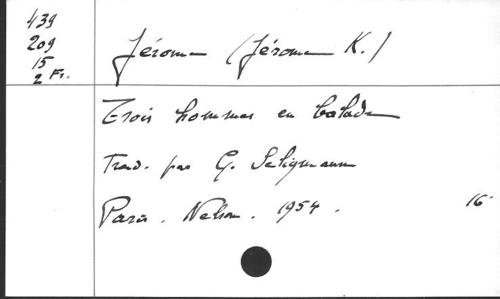 439
209
15
2 Fr.
Jérome (Jérome K.)
Trois hommes en balade
Trad. par G. Seligmann
Paris. Nelson. 1954.
16°